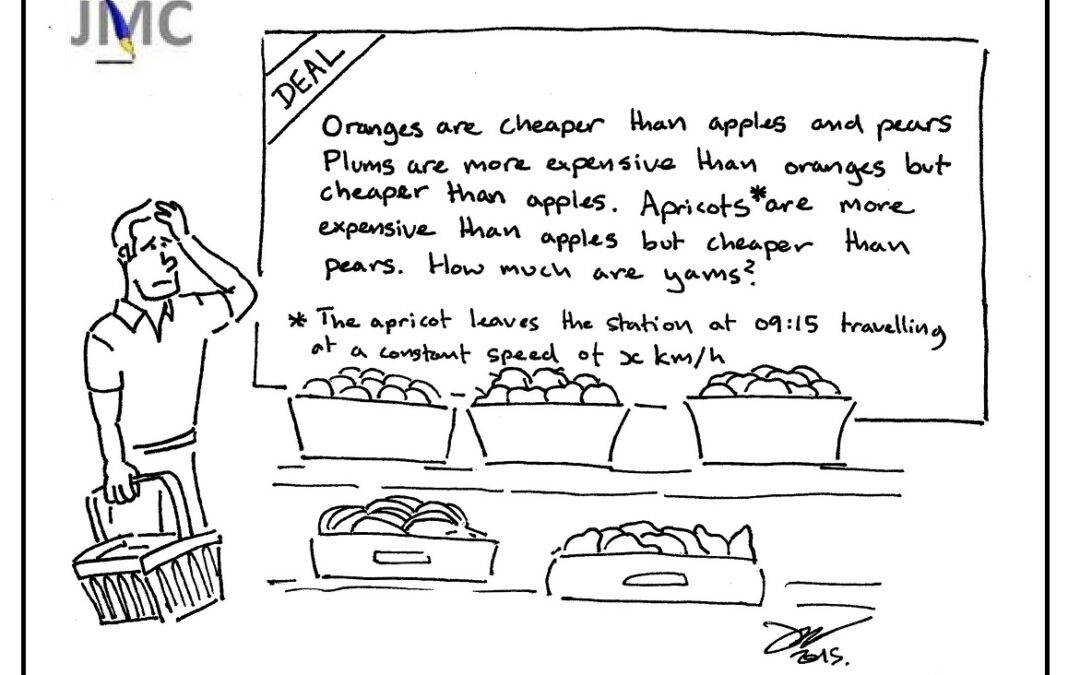 JMC
DEAL
Oranges are cheaper than apples and pears
Plums are more expensive than oranges but
cheaper than apples. Apricots* are more
expensive than apples but cheaper than
pears. How much are yams?
* The apricot leaves the station at 09:15 travelling
at a constant speed of x km/h
2015.